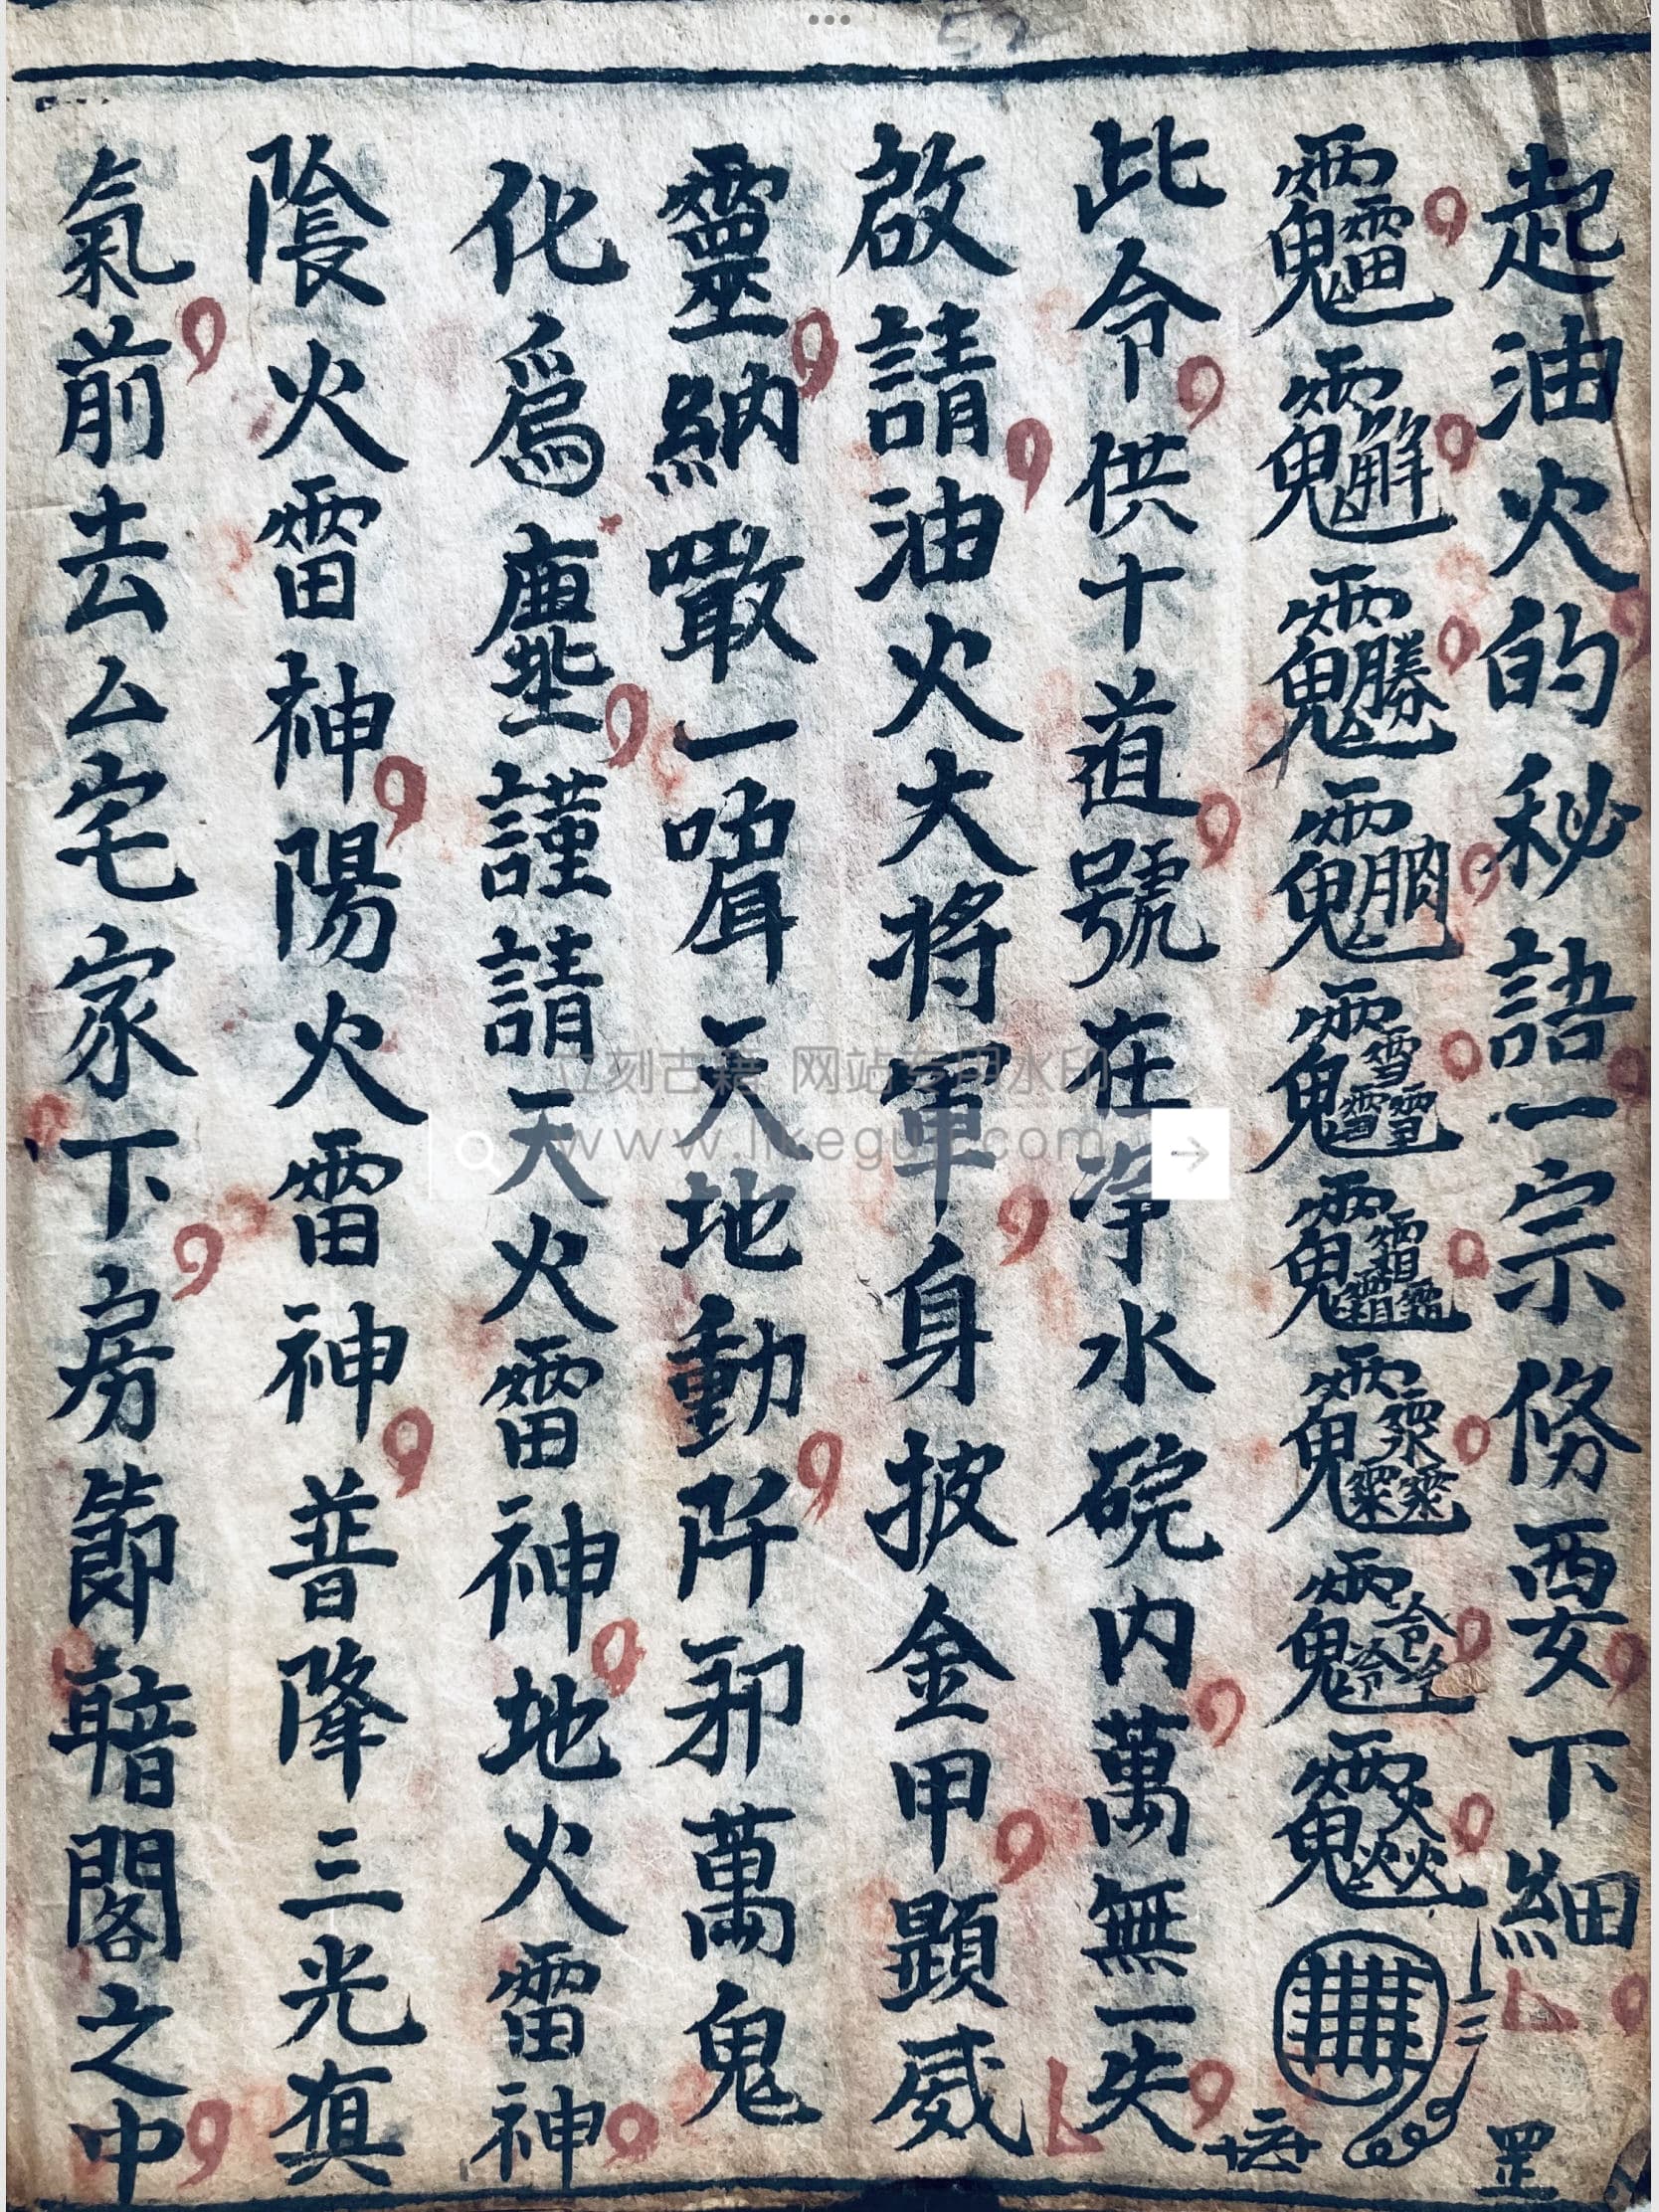 52
起油火的秘語一宗俻要下細
罡
此令供十道號在净水碗内萬無一失
啟請油火大将軍身披金甲顕威
靈納噉一聲天地動阡邪萬鬼
化爲塵謹請天火雷神地火雷神
陰火雷神陽火雷神普降三光真
氣前去厶宅家下房節暗閣之中
立刻古籍 网站专用水印
www.likeguji.com